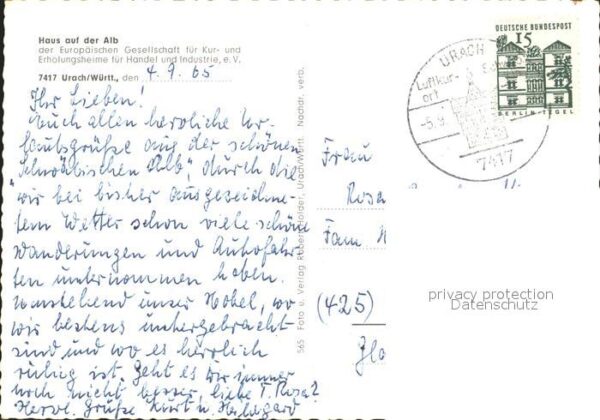 Haus auf der Alb
der Europäischen Gesellschaft für Kur- und
Erholungsheime für Handel und Industrie, e. V.
7417 Urach/Württ., den 4.9.65
Ihr Lieben!
Euch allen herzliche Ur-
laubsgrüße aus der schönen
Schwäbischen Alb, durch die
wir bei bisher ausgezeichne-
tem Wetter schon viele schöne
Wanderungen und Autofahr-
ten unternommen haben.
Umstehend unser Hotel, wo
wir bestens untergebracht
sind und wo es herrlich
ruhig ist. Geht es wir immer
noch nicht besser, liebe T. Rosa?
Herzl. Grüße Kurt u. Hildegard
565 Foto u. Verlag Robert Holder, Urach/Württ. Nachdr. verb.
DEUTSCHE BUNDESPOST
15
BERLIN-TEGEL
URACH
Luftkur-
ort
-5.9.
7417
Frau
Rosa
Fam
(425)
privacy protection
Datenschutz